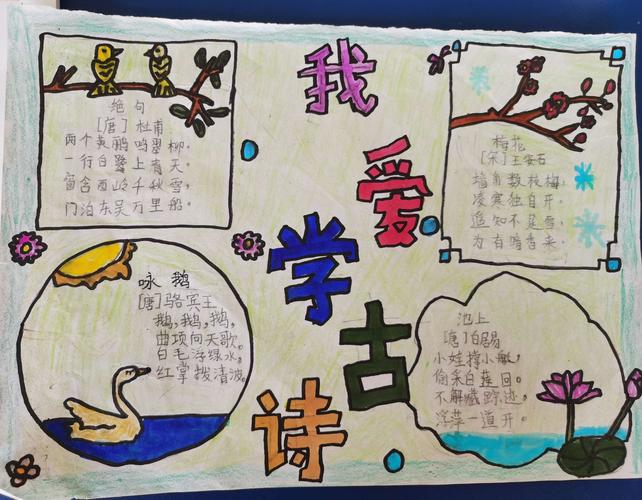 我爱学古诗
绝句
[唐] 杜甫
两个黄鹂鸣翠柳,
一行白鹭上青天。
窗含西岭千秋雪,
门泊东吴万里船。
梅花
[宋] 王安石
墙角数枝梅,
凌寒独自开。
遥知不是雪,
为有暗香来。
咏鹅
[唐] 骆宾王
鹅,鹅,鹅,
曲项向天歌。
白毛浮绿水,
红掌拨清波。
池上
[唐] 白居易
小娃撑小艇,
偷采白莲回。
不解藏踪迹,
浮萍一道开。